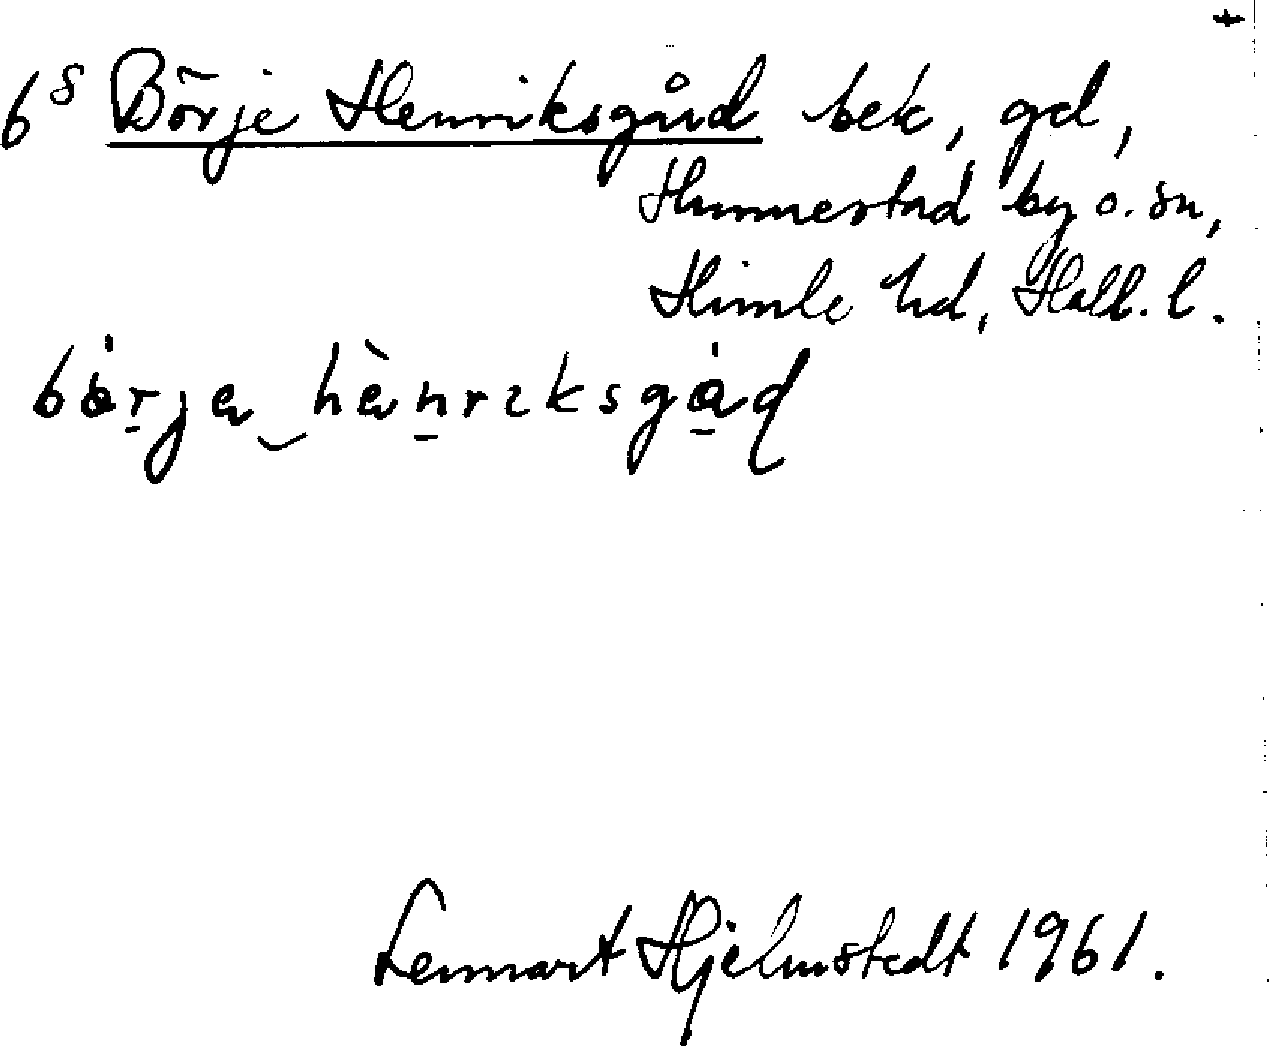 6s Börje Henriksgård bek, gd,
Hunnestad by o. sn,
Himle hd, Hall. l.
bèrja hènrıksgåd
Lennart Hjelmstedt 1961.